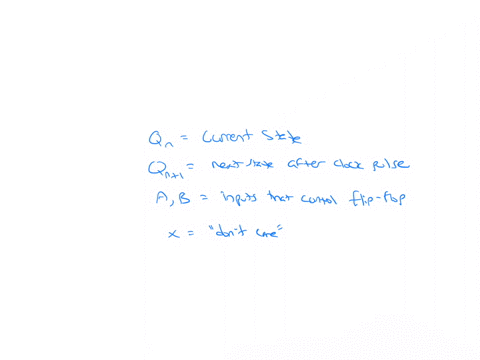 Qn = Current State
Qn+1 = next state after clock pulse
A, B = inputs that control flip-flop
x = "don't care"